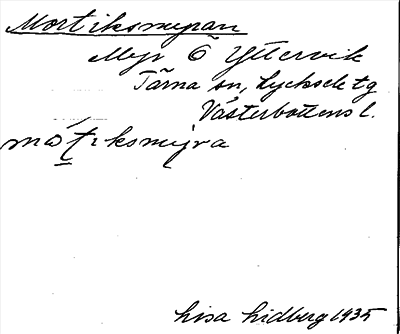 Mortiksmyran
Myr Ö Yttervik
Tärna sn, Lycksele tg
Västerbottens l.
mɷ́ṯıksmyra
Lisa Lidberg 1935